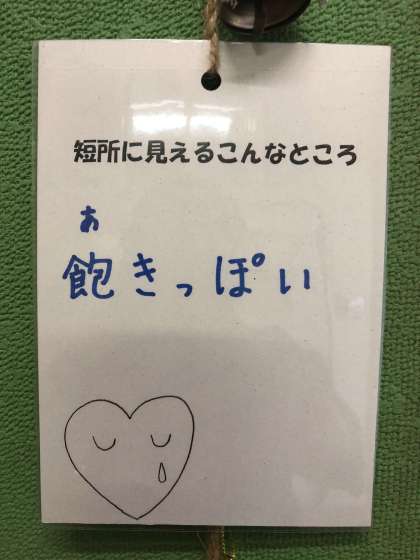 短所に見えるこんなところ
あ
飽きっぽい